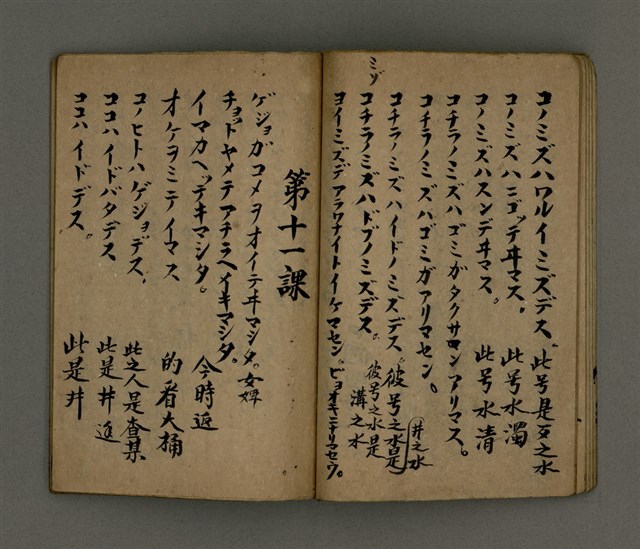 コノミズハワルイミズデス。此号是歹之水
コノミズハニゴッデヰマス。此号水濁
コノミズハスンデヰマス。此号水清
コチラノミズハゴミガタクサロンアリマス。
コチラノミズハゴミガアリマセン。
井之水
コチラノミズハイドノミズデス。彼号之水是
ミゾ
コチラノミズハドブノミズデス。彼号之水是溝之水
ヨイミズデアラワナイトイケマセン。ビョオキニナリマセウ。
第十一課
ゲジョガコメヲオイテヰマシタ。女婢
チョットヤメテアチラヘイキマシタ。
イマカヘッデキマシタ。今時返
オケヲミテイマス 的看大桶
コノヒトハゲジョデス、此之人是查某
ココハイドバタデス 此是井边
ココハイドデス。此是井